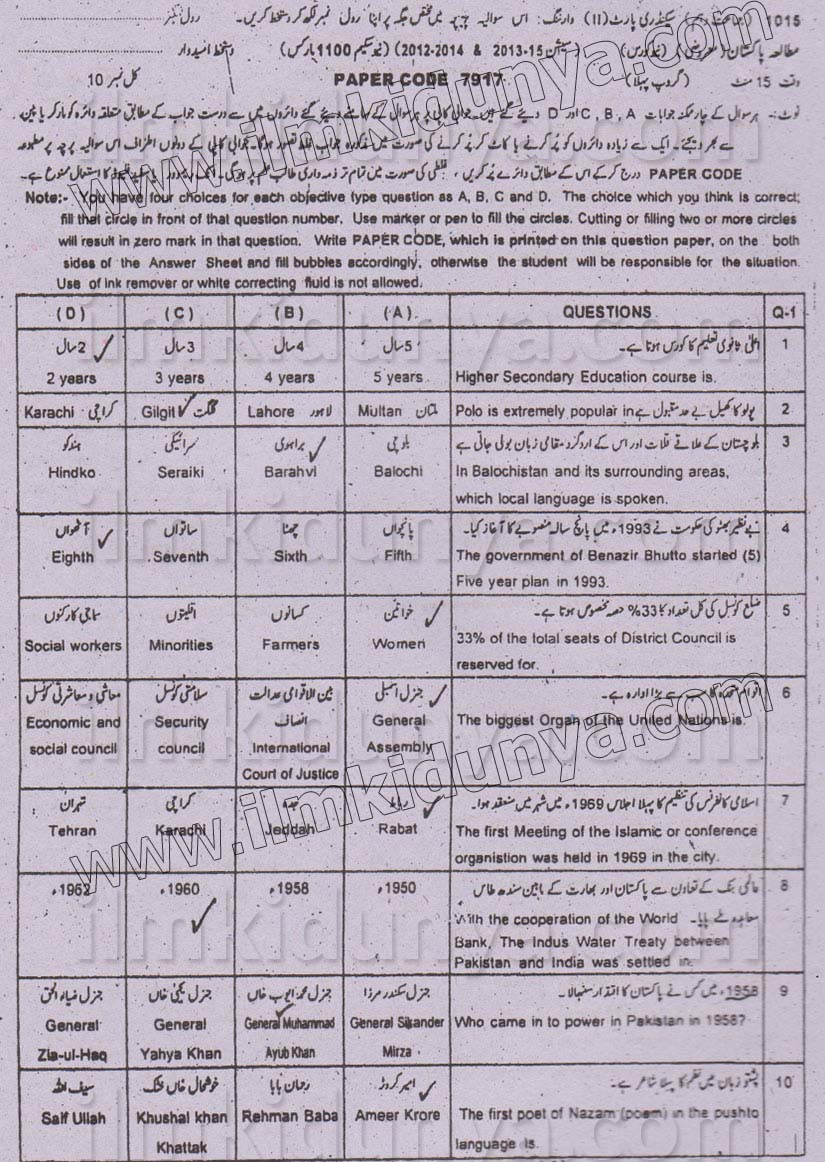 1015 سیکنڈری پارٹ (II) وارننگ: اس سوالیہ پرچہ پر مختص جگہ پر اپنا رول نمبر لکھ کر دستخط کریں۔ رول نمبر
مطالعہ پاکستان (معروضی) (نیو کورس) (سیشن 15-2013 & 2014-2012) (نیو سکیم 1100 مارکس) دستخط امیدوار
وقت 15 منٹ (گروپ پہلا) PAPER CODE 7917 کل نمبر 10
نوٹ:- ہر سوال کے چار ممکنہ جوابات C, B, A اور D دیئے گئے ہیں۔ جوابی کاپی پر ہر سوال کے سامنے دیئے گئے دائروں میں سے درست جواب کے مطابق متعلقہ دائرہ کو مارکر یا پین
سے بھر دیجئے۔ ایک سے زیادہ دائروں کو پُر کرنے یا کاٹ کر پُر کرنے کی صورت میں مذکورہ جواب غلط تصور ہوگا۔ جوابی کاپی کے دونوں اطراف اس سوالیہ پرچہ پر مطبوعہ
PAPER CODE درج کر کے اس کے مطابق دائرے پُر کریں، غلطی کی صورت میں تمام تر ذمہ داری طالب علم پر ہوگی۔ انک ریموور یا سفید فلیوڈ کا استعمال ممنوع ہے۔
Note:- You have four choices for each objective type question as A, B, C and D. The choice which you think is correct;
fill that circle in front of that question number. Use marker or pen to fill the circles. Cutting or filling two or more circles
will result in zero mark in that question. Write PAPER CODE, which is printed on this question paper, on the both
sides of the Answer Sheet and fill bubbles accordingly, otherwise the student will be responsible for the situation.
Use of ink remover or white correcting fluid is not allowed.
(D) (C) (B) (A) QUESTIONS Q-1
2 سال 3 سال 4 سال 5 سال اعلیٰ ثانوی تعلیم کا کورس ہوتا ہے۔ 1
2 years 3 years 4 years 5 years Higher Secondary Education course is.
Karachi کراچی Gilgit گلگت Lahore لاہور Multan ملتان Polo is extremely popular in پولو کا کھیل بے حد مقبول ہے 2
ہندکو سرائیکی براہوی بلوچی بلوچستان کے علاقے قلات اور اس کے اردگرد مقامی زبان بولی جاتی ہے 3
Hindko Seraiki Barahvi Balochi In Balochistan and its surrounding areas,
which local language is spoken.
آٹھواں ساتواں چھٹا پانچواں بے نظیر بھٹو کی حکومت نے 1993ء میں پانچ سالہ منصوبے کا آغاز کیا۔ 4
Eighth Seventh Sixth Fifth The government of Benazir Bhutto started (5)
Five year plan in 1993.
سماجی کارکنوں اقلیتوں کسانوں خواتین ضلع کونسل کی کل تعداد کا 33% حصہ مخصوص ہوتا ہے۔ 5
Social workers Minorities Farmers Women 33% of the total seats of District Council is
reserved for.
معاشی و معاشرتی کونسل سلامتی کونسل بین الاقوامی عدالت جنرل اسمبلی اقوام متحدہ کا سب سے بڑا ادارہ ہے۔ 6
Economic and Security انصاف General The biggest Organ of the United Nations is.
social council council International Assembly
Court of Justice
تہران کراچی جدہ رباط اسلامی کانفرنس کی تنظیم کا پہلا اجلاس 1969ء میں شہر میں منعقد ہوا۔ 7
Tehran Karachi Jeddah Rabat The first Meeting of the Islamic or conference
organistion was held in 1969 in the city.
1962ء 1960ء 1958ء 1950ء عالمی بنک کے تعاون سے پاکستان اور بھارت کے مابین سندھ طاس 8
معاہدہ طے پایا۔ With the cooperation of the World
Bank, The Indus Water Treaty between
Pakistan and India was settled in.
جنرل ضیاء الحق جنرل یحییٰ خاں جنرل محمد ایوب خاں جنرل سکندر مرزا 1958ء میں کس نے پاکستان کا اقتدار سنبھالا۔ 9
General General General Muhammad General Sikander Who came in to power in Pakistan in 1958?
Zia-ul-Haq Yahya Khan Ayub Khan Mirza
سیف اللہ خوشحال خاں خٹک رحمان بابا امیر کروڑ پشتو زبان میں نظم کا پہلا شاعر ہے۔ 10
Saif Ullah Khushal khan Rehman Baba Ameer Krore The first poet of Nazam (poem) in the pushto
Khattak language is.
www.ilmkidunya.com
www.ilmkidunya.com
ilmkidunya.com
ilmkidunya.com
ilmkidunya.com
ilmkidunya.com
ilmkidunya.com
ilmkidunya.com